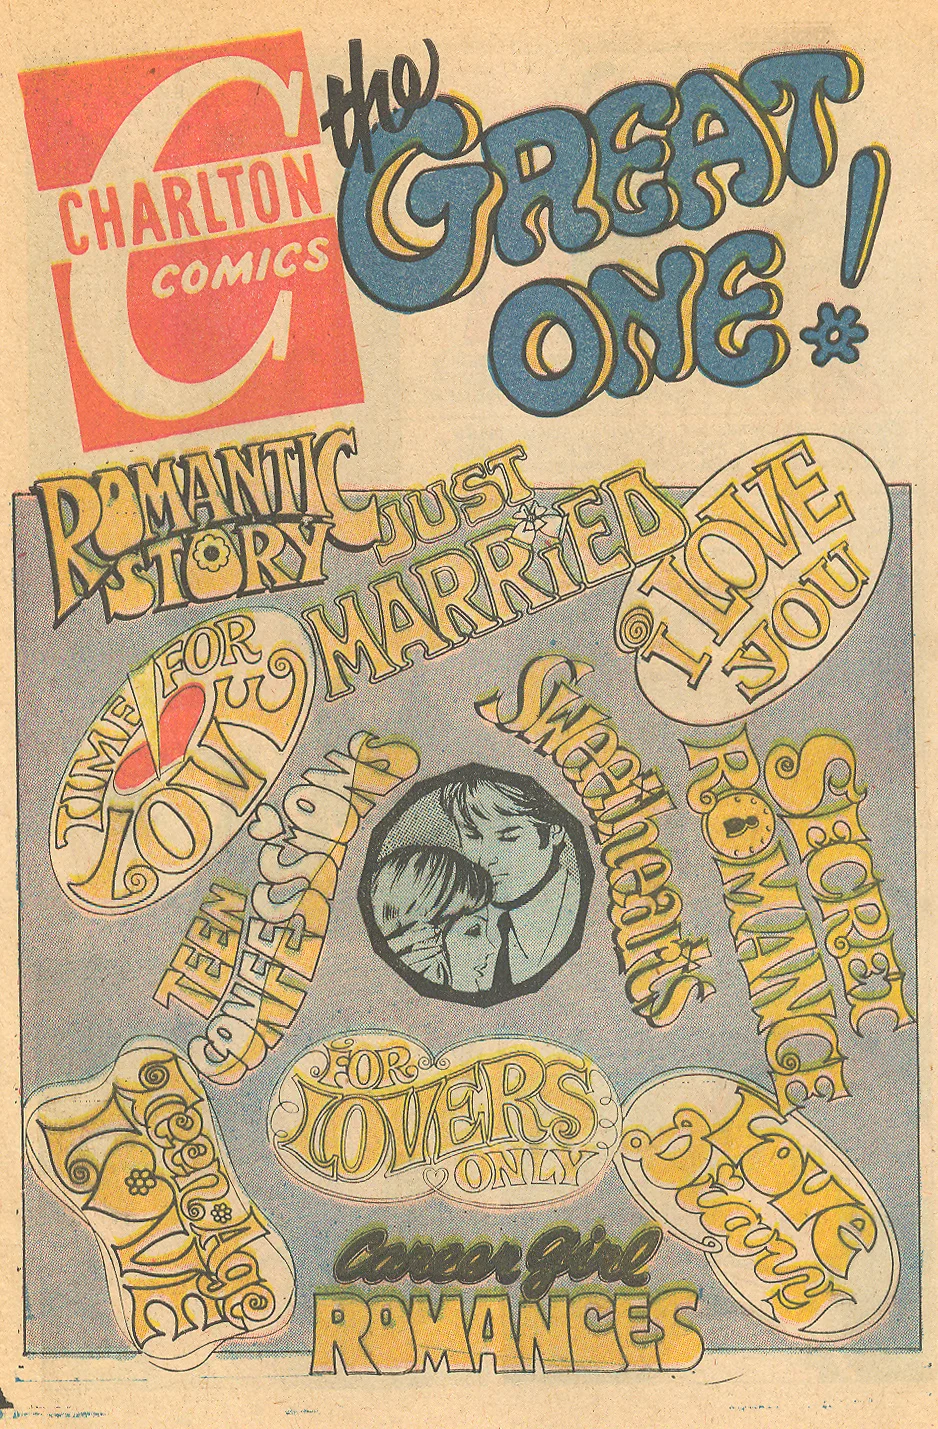 CHARLTON
COMICS
the
GREAT
ONE!
ROMANTIC
STORY
JUST
MARRiED
I LOVE
YOU
TIME FOR
LOVE
TEEN
CONFESSIONS
Sweethearts
SECRET
ROMANCE
Teen-Age
LOVE
FOR
LOVERS
ONLY
Love
Diary
Career Girl
ROMANCES